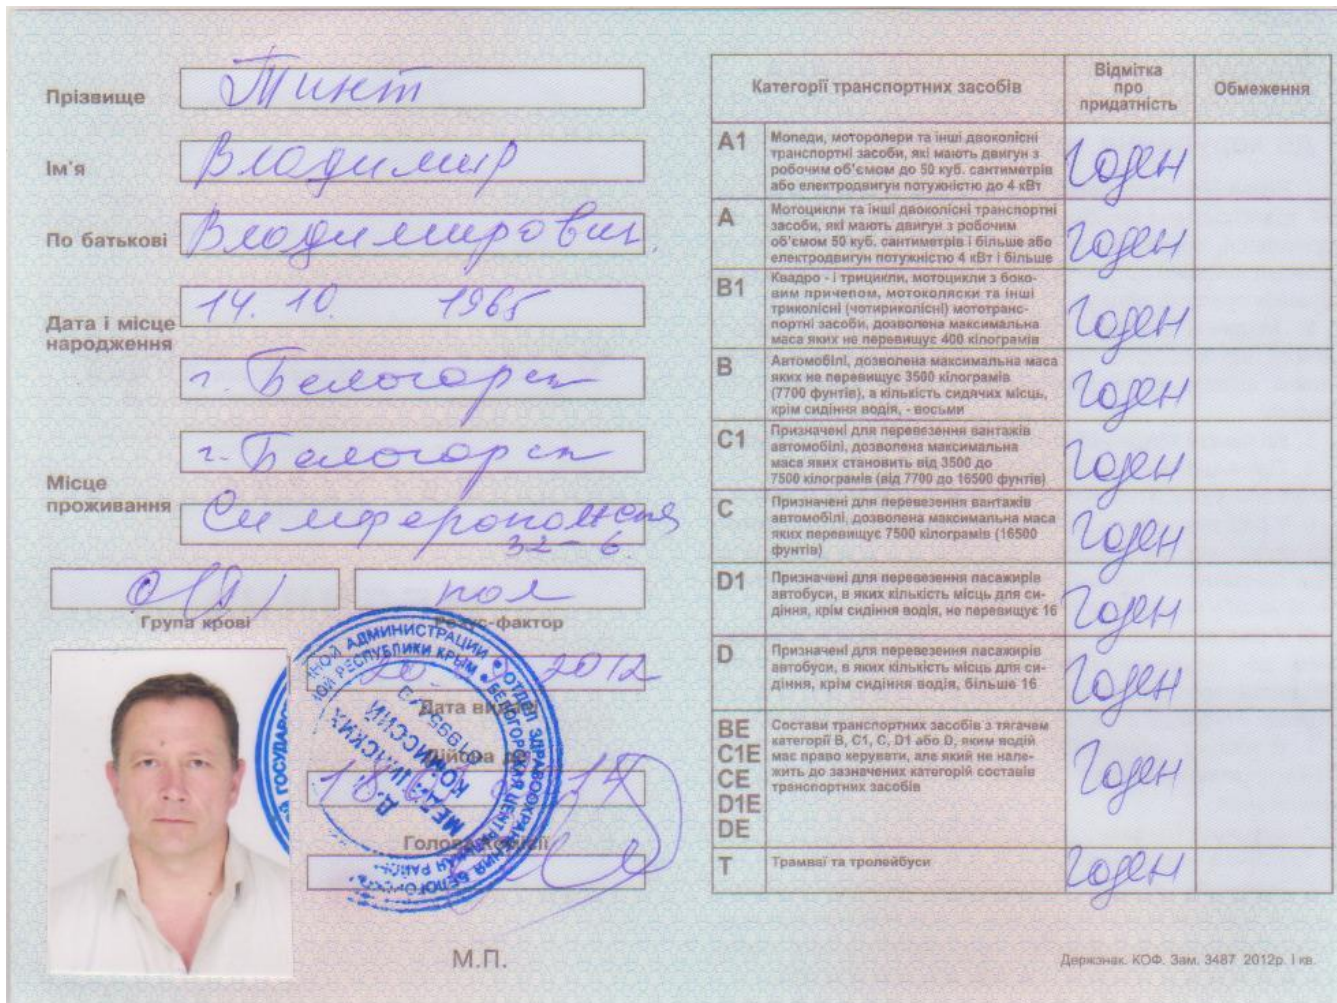 Прізвище Тинт
Ім'я Владимир
По батькові Владимирович
Дата і місце народження
14. 10. 1965
г. Белогорск
Місце проживання
г. Белогорск
Симферопольская
32 - 6.
пол
Група крові
Резус-фактор
2012
Дата видачі
Дійсна до
Голова комісії
М.П.
ОТДЕЛ ЗДРАВООХРАНЕНИЯ
БЕЛОГОРСКАЯ ЦЕНТРАЛЬНАЯ РАЙОН
НОЙ РЕСПУБЛИКИ КРЫМ
НОЙ АДМИНИСТРАЦИИ
ДЛЯ МЕДИЦИНСКИХ КОМИССИЙ
Категорії транспортних засобів
Відмітка про придатність
Обмеження
A1
Мопеди, моторолери та інші двоколісні
транспортні засоби, які мають двигун з
робочим об'ємом до 50 куб. сантиметрів
або електродвигун потужністю до 4 кВт
Годен
A
Мотоцикли та інші двоколісні транспортні
засоби, які мають двигун з робочим
об'ємом 50 куб. сантиметрів і більше або
електродвигун потужністю 4 кВт і більше
Годен
B1
Квадро - і трицикли, мотоцикли з боко-
вим причепом, мотоколяски та інші
триколісні (чотириколісні) мототранс-
портні засоби, дозволена максимальна
маса яких не перевищує 400 кілограмів
Годен
B
Автомобілі, дозволена максимальна маса
яких не перевищує 3500 кілограмів
(7700 фунтів), а кількість сидячих місць,
крім сидіння водія, - восьми
Годен
C1
Призначені для перевезення вантажів
автомобілі, дозволена максимальна
маса яких становить від 3500 до
7500 кілограмів (від 7700 до 16500 фунтів)
Годен
C
Призначені для перевезення вантажів
автомобілі, дозволена максимальна маса
яких перевищує 7500 кілограмів (16500
фунтів)
Годен
D1
Призначені для перевезення пасажирів
автобуси, в яких кількість місць для си-
діння, крім сидіння водія, не перевищує 16
Годен
D
Призначені для перевезення пасажирів
автобуси, в яких кількість місць для си-
діння, крім сидіння водія, більше 16
Годен
BE
C1E
CE
D1E
DE
Состави транспортних засобів з тягачем
категорії B, C1, C, D1 або D, яким водій
має право керувати, але який не нале-
жить до зазначених категорій составів
транспортних засобів
Годен
T
Трамваї та тролейбуси
Годен
Держзнак. КОФ. Зам. 3487 2012р. І кв.